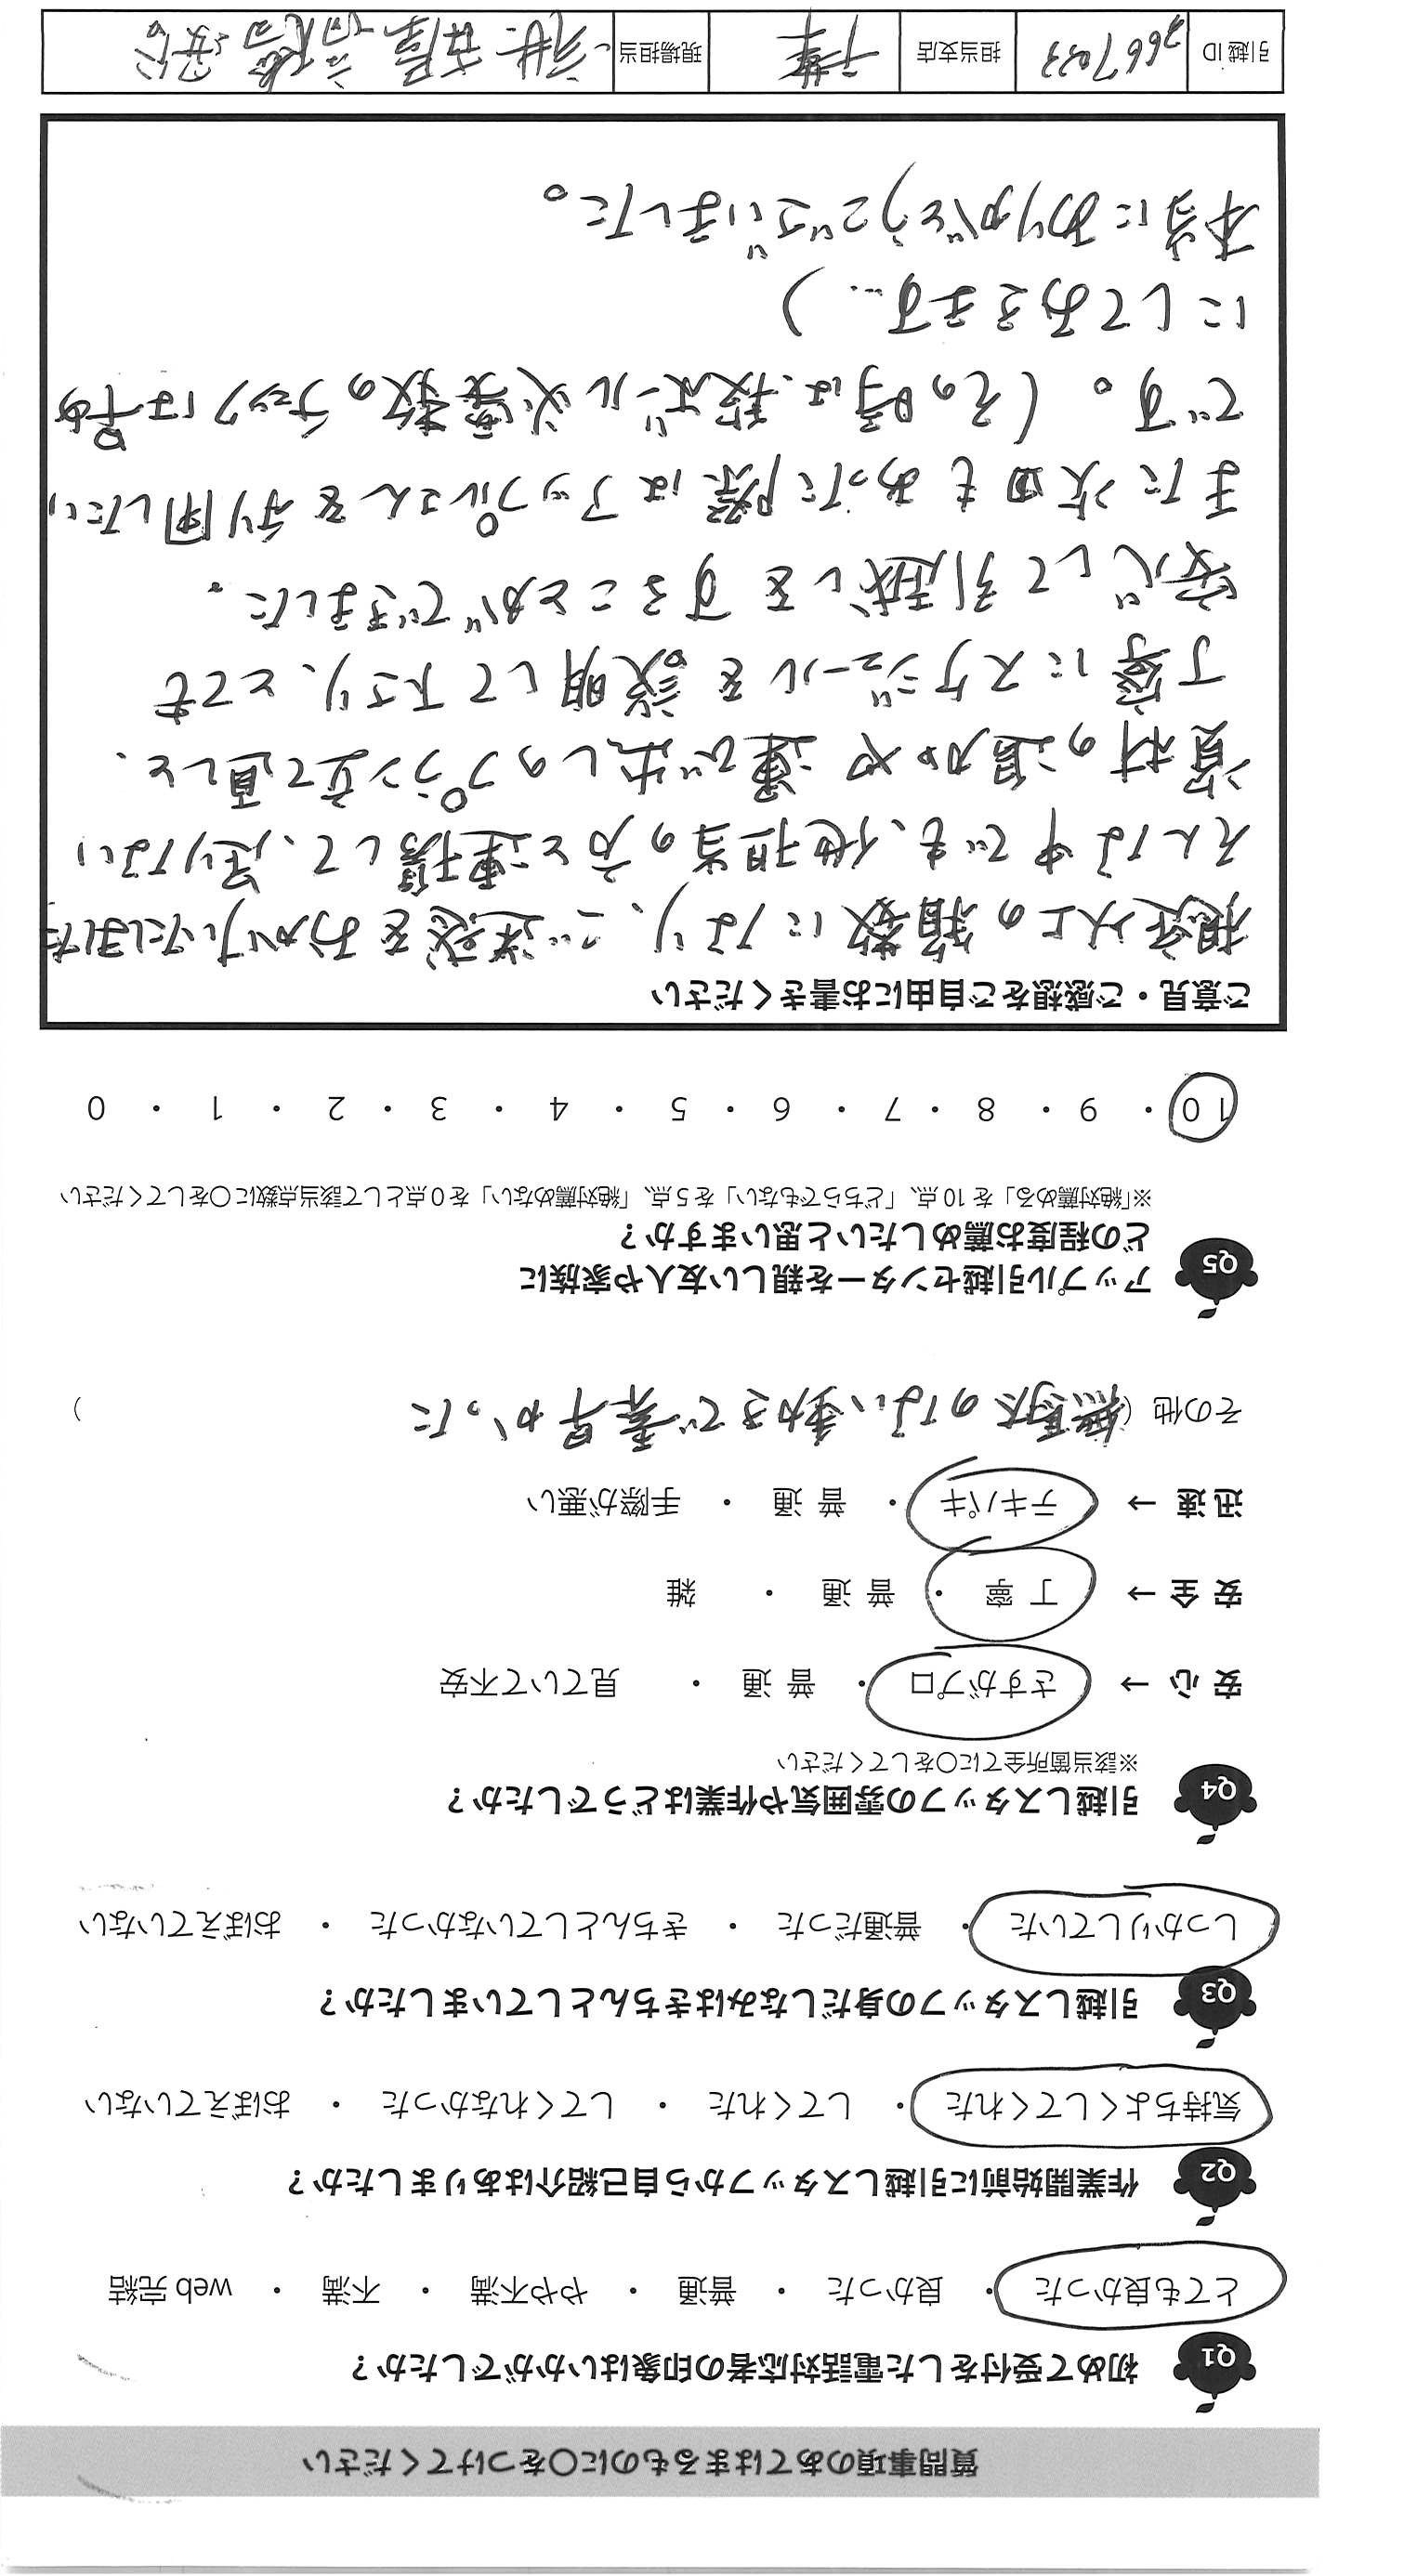 質問事項のあてはまるものに○をつけてください
Q1 初めて受付をした電話対応者の印象はいかがでしたか？
とても良かった ・ 良かった ・ 普通 ・ やや不満 ・ 不満 ・ web 完結
Q2 作業開始前に引越しスタッフから自己紹介はありましたか？
気持ちよくしてくれた ・ してくれた ・ してくれなかった ・ おぼえていない
Q3 引越しスタッフの身だしなみはきちんとしていましたか？
しっかりしていた ・ 普通だった ・ きちんとしていなかった ・ おぼえていない
Q4 引越しスタッフの雰囲気や作業はどうでしたか？
※該当箇所全てに○をしてください
安 心 → さすがプロ ・ 普 通 ・ 見ていて不安
安 全 → 丁 寧 ・ 普 通 ・ 雑
迅 速 → テキパキ ・ 普 通 ・ 手際が悪い
その他（無駄のない動きで素早かった ）
Q5 アップル引越センターを親しい友人や家族に
どの程度お薦めしたいと思いますか？
※「絶対薦める」を 10 点、「どちらでもない」を 5 点、「絶対薦めない」を 0 点として該当点数に○をしてください
10 ・ 9 ・ 8 ・ 7 ・ 6 ・ 5 ・ 4 ・ 3 ・ 2 ・ 1 ・ 0
ご意見・ご感想をご自由にお書きください
想定以上の箱数になり、ご迷惑をおかけいたしました
そんな中でも、他担当の方と連携して、足りない
資材の追加や運び出しのプラン立て直しと、
丁寧にスケジュールを説明して下さり、とても
安心して引越しをすることができました。
また次回もあった際はアップルさんを利用したい
です。(その時は、段ボール必要数のチェックは早め
にしておきます…)
本当にありがとうございました。
引越 ID 2667033 担当支店 千葉 現場担当